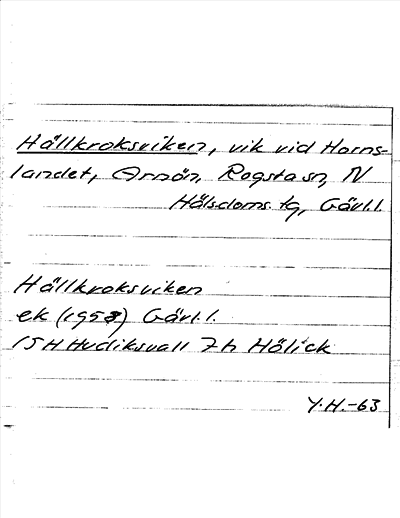 Hällkroksviken, vik vid Horns-
landet, Arnön, Rogsta sn, N
Hälsdoms. tg, Gävl.l.
Hällkroksviken
ek (1958) Gävl.l.
15H Hudiksvall 7h Hölick
Y.H.-63